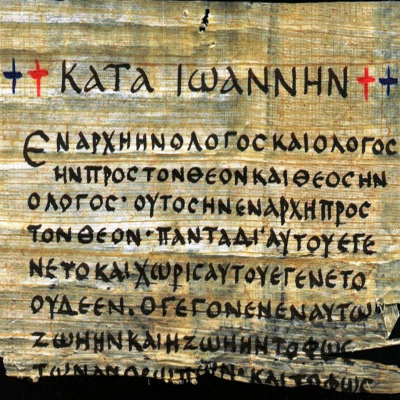 ΚΑΤΑ ΙѠΑΝΝΗΝ
ΕΝΑΡΧΗΗΝΟΛΟΓΟϹΚΑΙΟΛΟΓΟϹ
ΗΝΠΡΟϹΤΟΝΘΕΟΝΚΑΙΘΕΟϹΗΝ
ΟΛΟΓΟϹ· ΟΥΤΟϹΗΝΕΝΑΡΧΗΠΡΟϹ
ΤΟΝΘΕΟΝ· ΠΑΝΤΑΔΙ'ΑΥΤΟΥΕΓΕ
ΝΕΤΟΚΑΙΧѠΡΙϹΑΥΤΟΥΕΓΕΝΕΤΟ
ΟΥΔΕΕΝ. ΟΓΕΓΟΝΕΝΕΝΑΥΤѠ·
ΖѠΗΗΝΚΑΙΗΖѠΗΗΝΤΟΦѠϹ
ΤѠΝΑΝΘΡѠΠѠΝ· ΚΑΙΤΟΦѠϹ